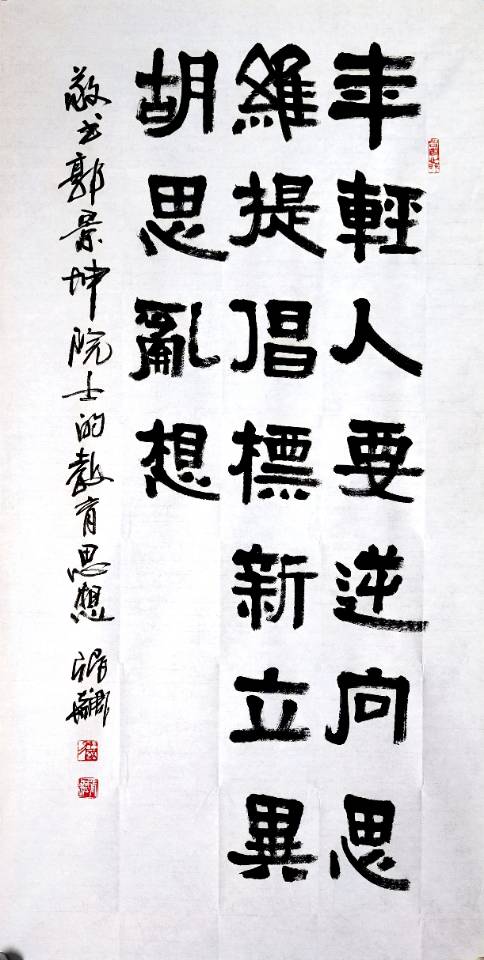 年輕人要逆向思
維提倡標新立異
胡思亂想
敬书郭景坤院士的教育思想